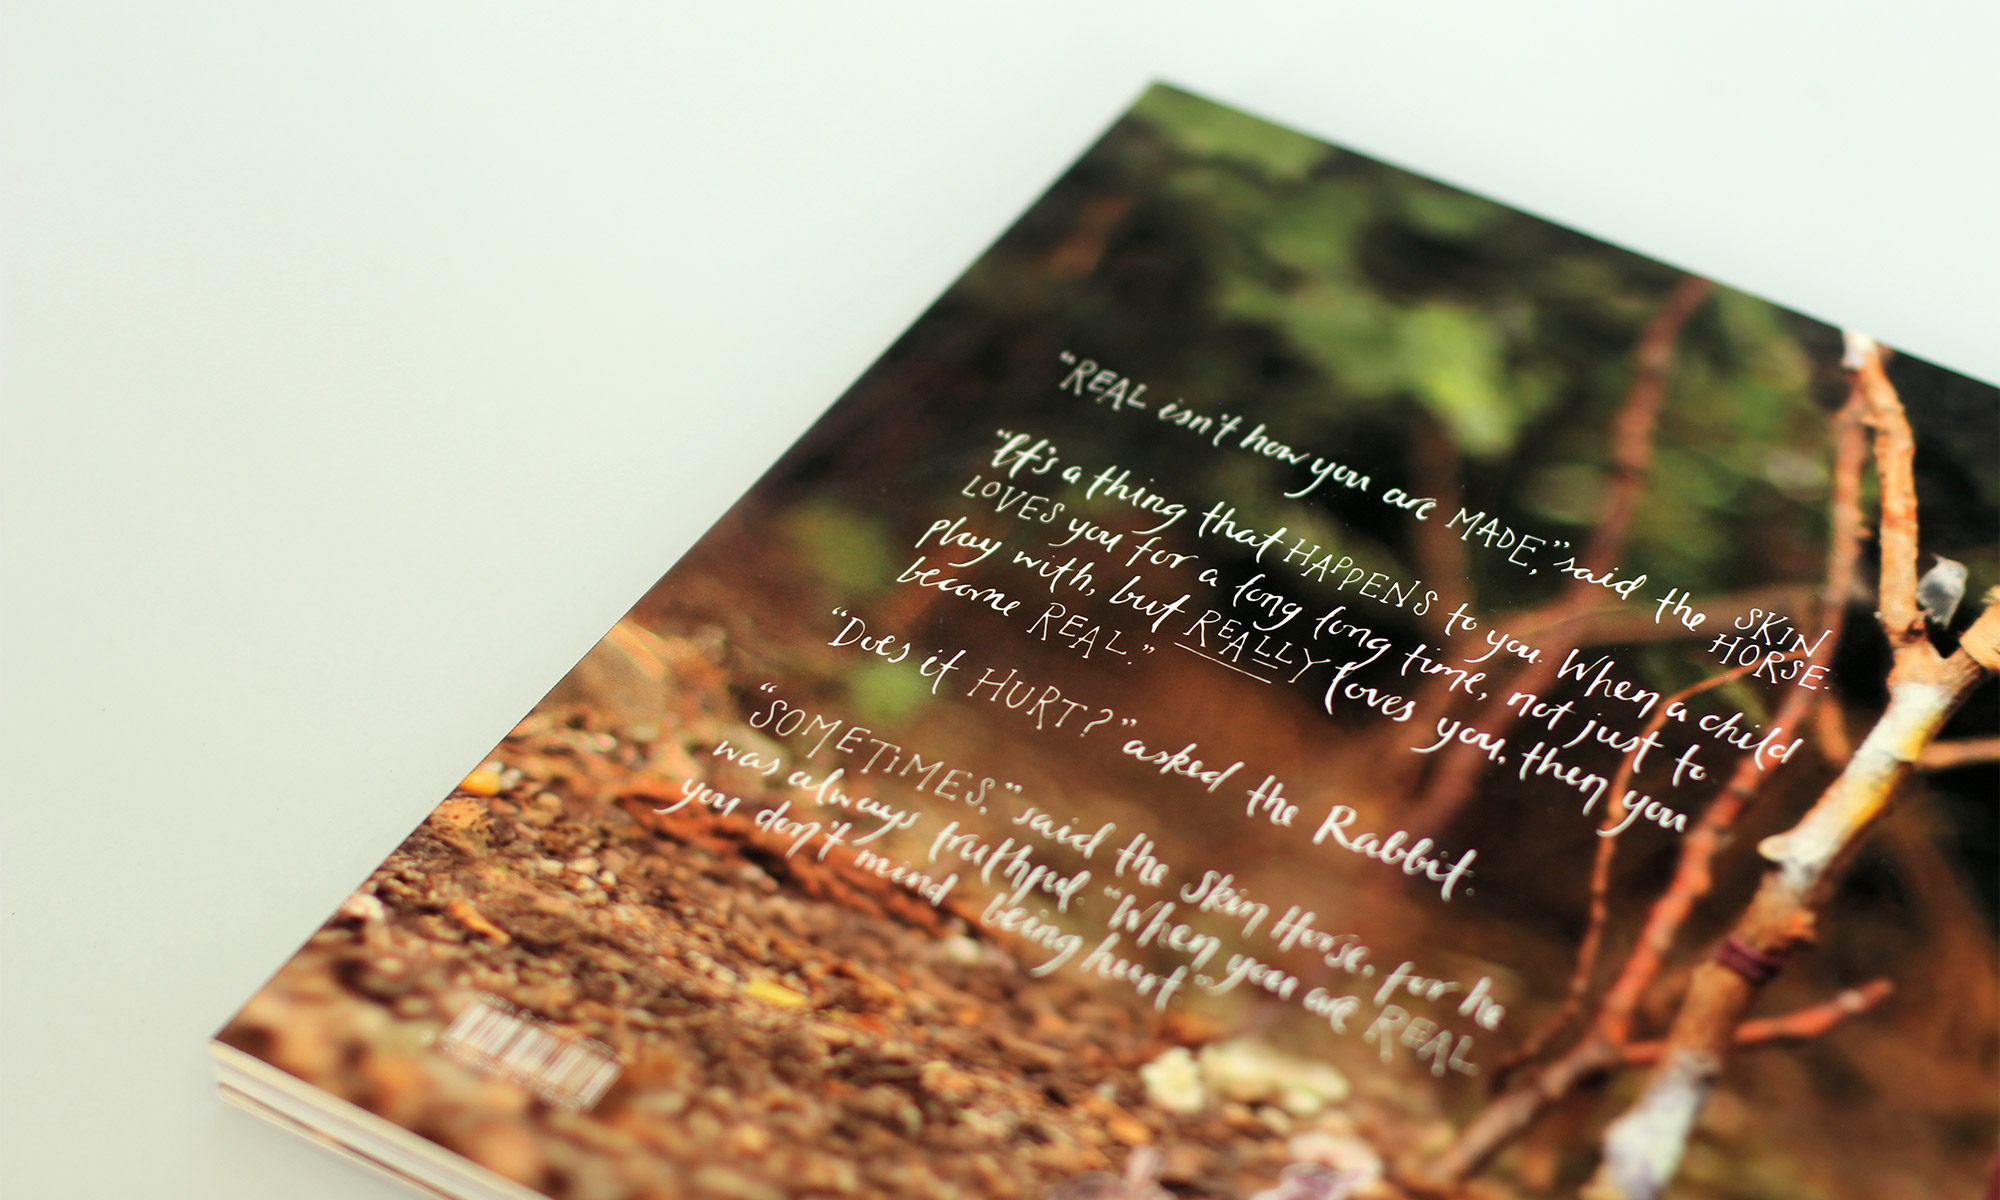 “REAL isn't how you are MADE,” said the SKIN HORSE.
“It's a thing that HAPPENS to you. When a child
LOVES you for a long long time, not just to
play with, but REALLY loves you, then you
become REAL.”
“Does it HURT?” asked the Rabbit.
“SOMETIMES,” said the Skin Horse, for he
was always truthful. “When you are REAL
you don't mind being hurt.”